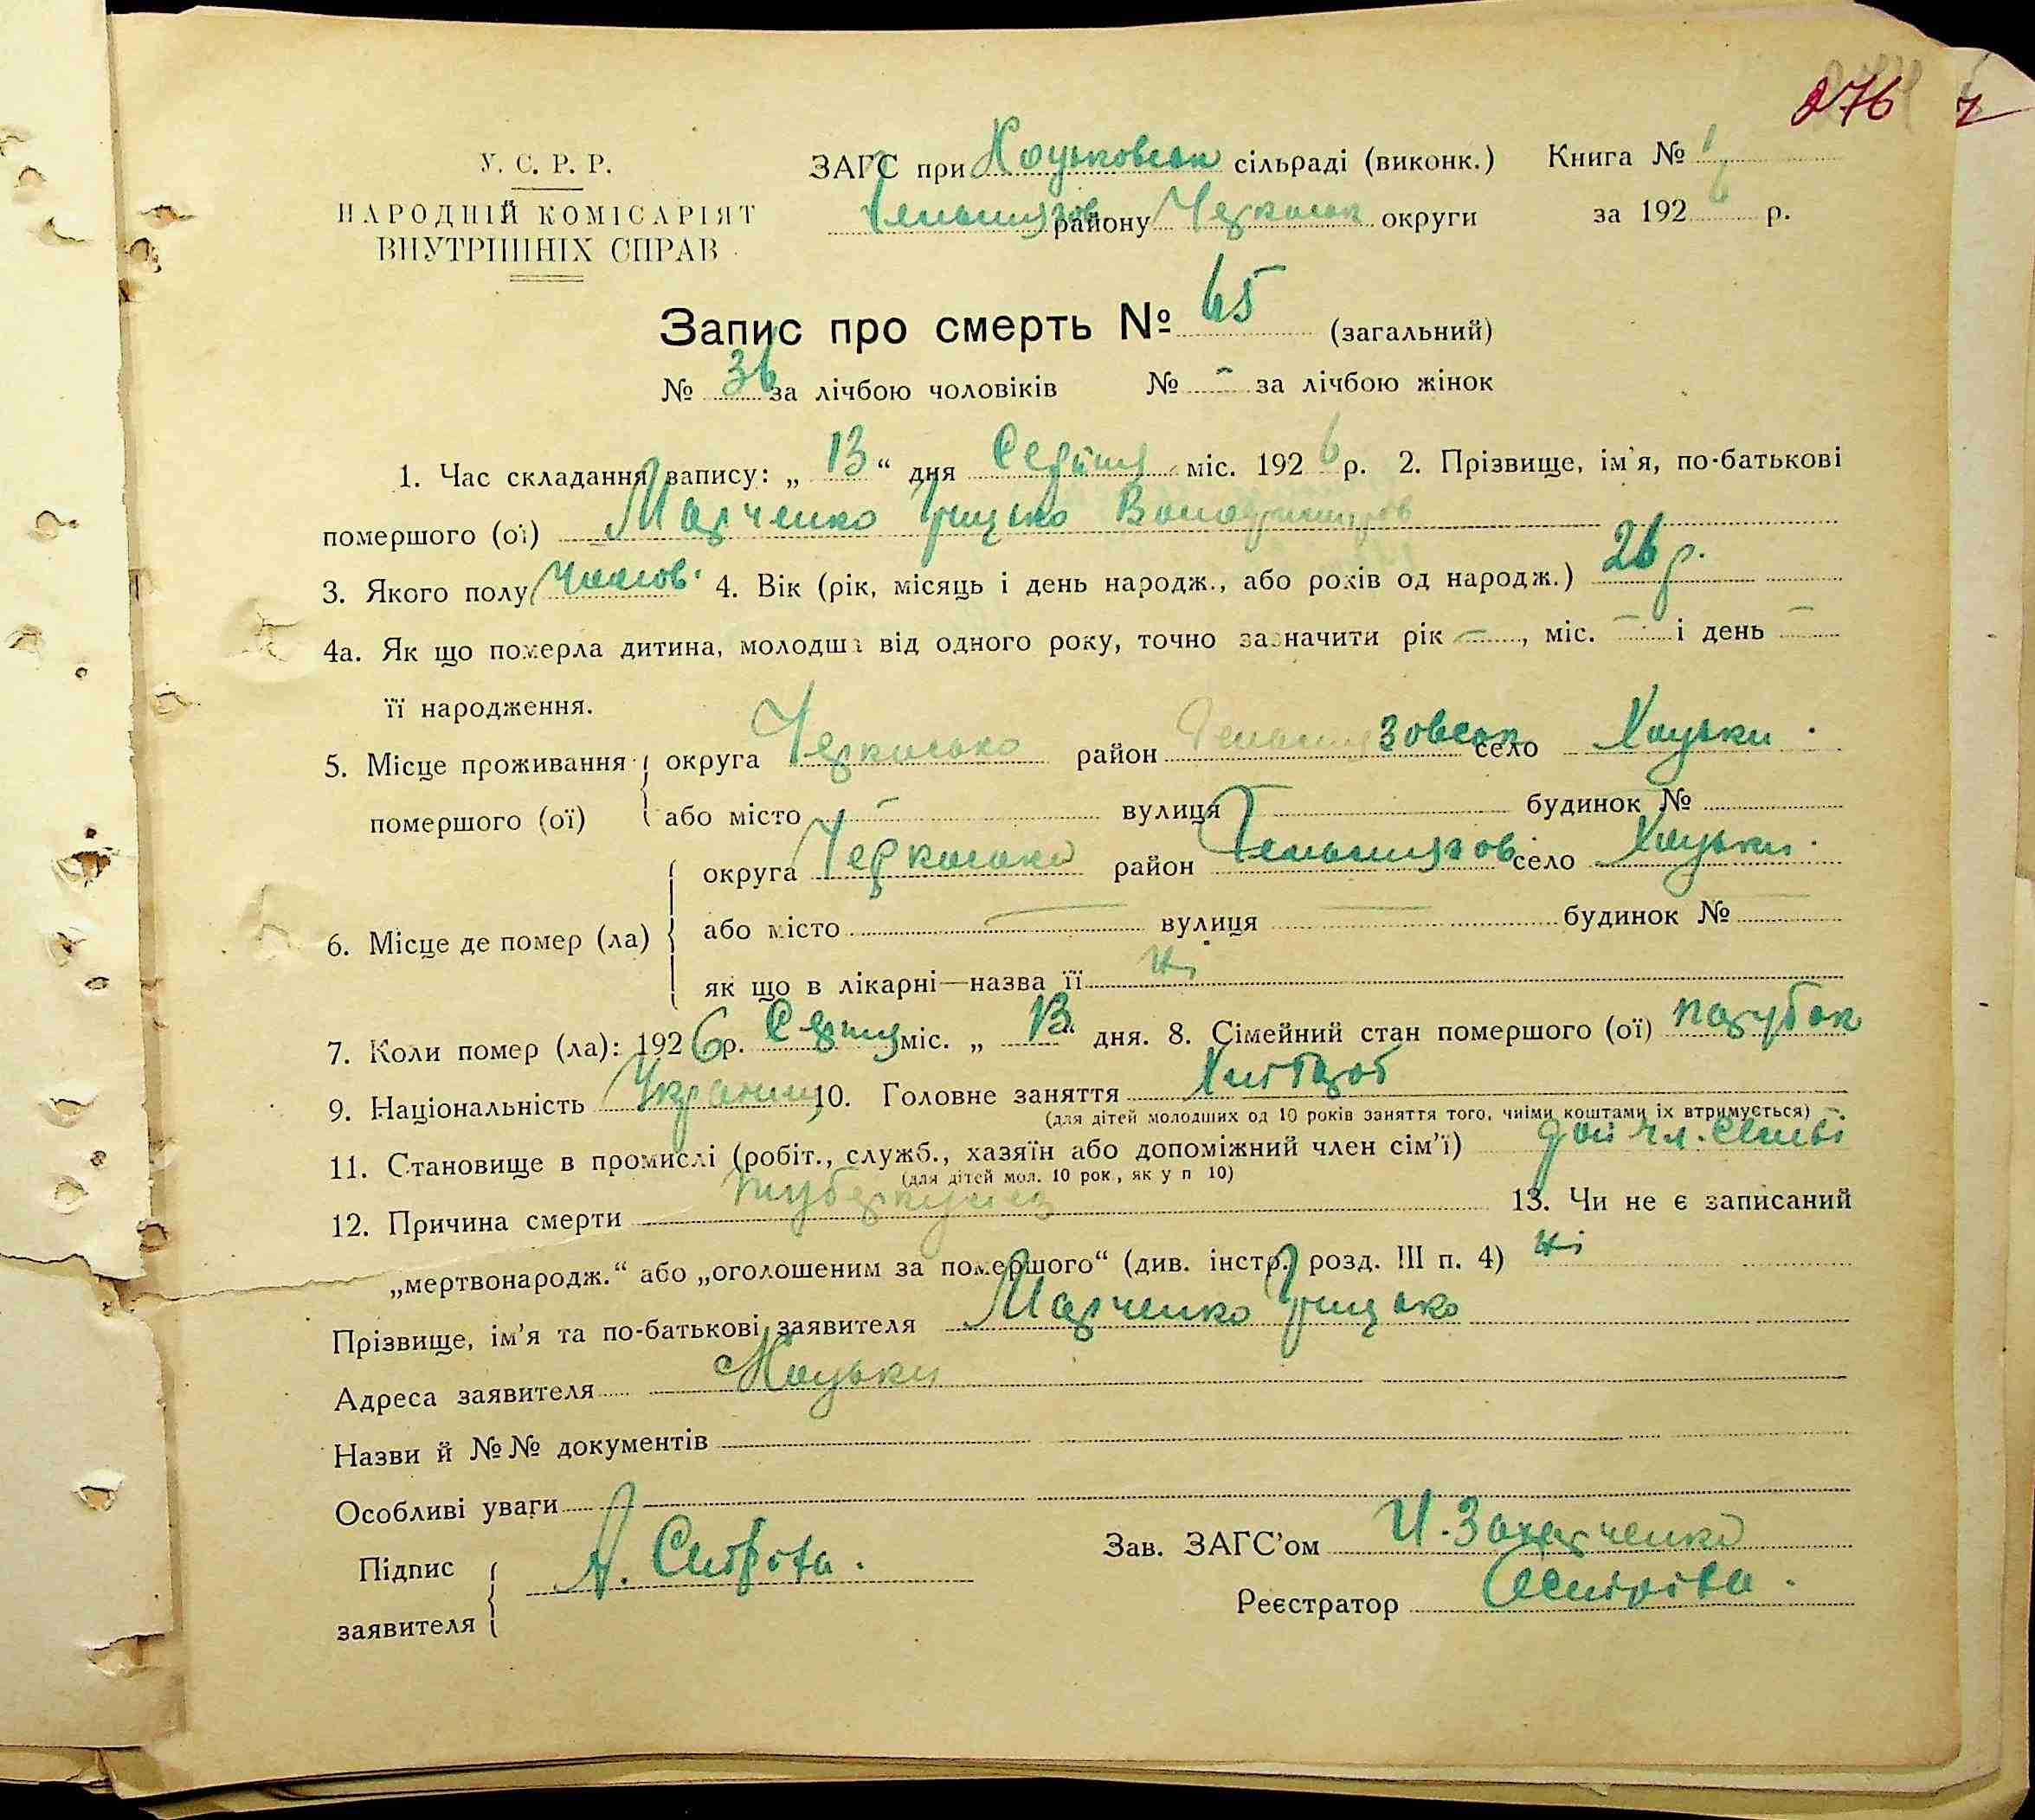 276
У. С. Р. Р.
НАРОДНІЙ КОМІСАРІЯТ
ВНУТРІШНІХ СПРАВ
ЗАГС при Хоцьковськ сільраді (виконк.) Книга №
Гельмязов району Черкаськ округи за 192 6 р.
Запис про смерть № 65 (загальний)
№ 36 за лічбою чоловіків № - за лічбою жінок
1. Час складання запису: „ 13 “ дня Серпня міс. 192 6 р. 2. Прізвище, ім'я, по-батькові
помершого (ої) Марченко Грицько Володимиров
3. Якого полу Чолов. 4. Вік (рік, місяць і день народж., або років од народж.) 26 р.
4а. Як що померла дитина, молодша від одного року, точно зазначити рік —, міс. — і день —
її народження.
5. Місце проживання помершого (ої) округа Черкасько район Гельмязовськ село Хоцьки .
або місто — вулиця — будинок №
6. Місце де помер (ла) округа Черкаська район Гельмязов село Хоцьки.
або місто — вулиця — будинок №
як що в лікарні—назва її ні
7. Коли помер (ла): 192 6 р. Серпня міс. „ 13 “ дня. 8. Сімейний стан помершого (ої) парубок
9. Національність Украинц 10. Головне заняття Хлібороб
(для дітей молодших од 10 років заняття того, чиїми коштами їх втримується)
11. Становище в промислі (робіт., служб., хазяїн або допоміжний член сім'ї) доп чл. сімьі
(для дітей мол. 10 рок., як у п 10)
12. Причина смерти туберкульоз 13. Чи не є записаний
„мертвонародж.“ або „оголошеним за помершого“ (див. інстр. розд. III п. 4) ні
Прізвище, ім'я та по-батькові заявителя Марченко Грицько
Адреса заявителя Хоцьки
Назви й №№ документів
Особливі уваги
Підпис заявителя А. Сирота .
Зав. ЗАГС'ом И. Захарченко
Реєстратор АСирота .